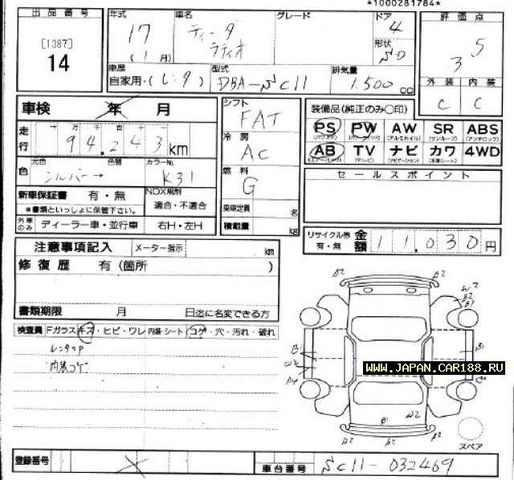 *1000281784*
出品番号
[1387]
14
年式
17
(1月)
車名
ティーダ
ラティオ
グレード
ドア
4
形状
SD
評価点
3 5
外装 内装
C C
車歴
自家用・(レンタ)
型式
DBA-SC11
排気量
1.500 cc
車検 年 月
走行
十万千百十
94.243 km
元色 色替 カラーNo.
色 シルバー→ K31
新車保証書 有・無
*書類といっしょに保管下さい。
NOX規制
適合・不適合
外車のみ ディーラー車・並行車 右H・左H
シフト
FAT
冷房
AC
燃料
G
乗車定員
積載量 kg
装備品(純正のみ○印)
PS PW AW SR ABS
AB TV ナビ カワ 4WD
セールスポイント
リサイクル券
有・無
金額 11.030円
注意事項記入 メーター指示 km
修復歴 有(箇所 )
書類期限 月 日迄に名変できる方
検査員 Fガラス キズ・ヒビ・ワレ 内装・シート コゲ・穴・汚れ・破れ
レンタUP
内装コゲ
A2 A2
W2
B2
B1
A2
B1
A2 A2
スペア
WWW.JAPAN.CAR188.RU
登録番号
車台番号 SC11-032469